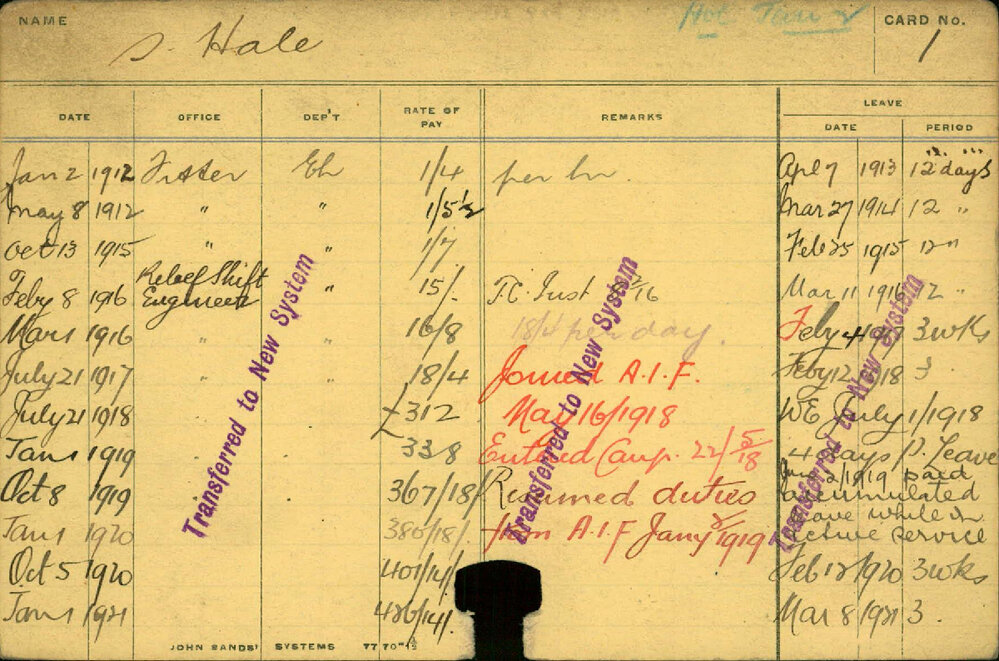 NAME S. Hale CARD No. 1
DATE OFFICE DEP'T RATE OF PAY REMARKS LEAVE
DATE PERIOD
Jan 2 1912 Fitter Eh 1/4 per hr. Apl 7 1913 12 days
May 8 1912 " " 1/5½ Mar 27 1914 12 "
Oct 13 1915 " " 1/7 Feb 25 1915 12 "
Feby 8 1916 Relief Shift Engineer " 15/- T.C. Inst 16 Mar 11 1916 12 "
Mar 1 1916 " " 16/8 18/4 per day. Feby 4 1917 3 wks
July 21 1917 " " 18/4 Joined A.I.F. Feby 12 1918 3
July 21 1918 £312 May 16/1918 WE July 1/1918
Jan 1 1919 338 Entered Camp. 22/5/18 4 days P. Leave
Oct 8 1919 367/18/ Resumed duties 2/1919 paid accumulated
Jan 1 1920 380/18/. from A.I.F Jany 2/1919 leave while on active service
Oct 5 1920 401/14/. Feb 12 1920 3 wks
Jan 1 1921 426/14/. Mar 8 1921 3.
Transferred to New System
Transferred to New System
Transferred to New System
JOHN SANDS' SYSTEMS